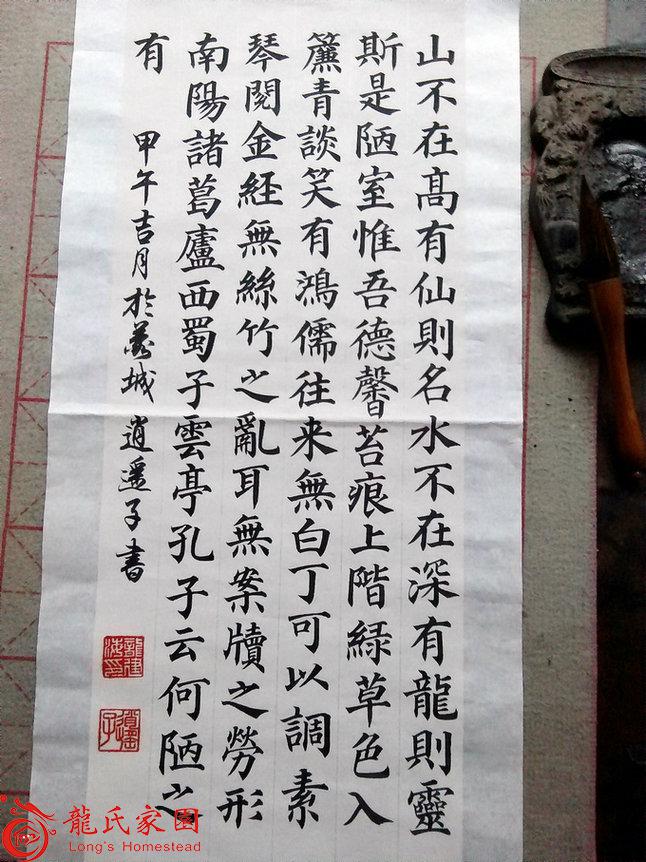 山不在高有仙則名水不在深有龍則靈
斯是陋室惟吾德馨苔痕上階綠草色入
簾青談笑有鴻儒往来無白丁可以調素
琴閱金経無絲竹之亂耳無案牘之勞形
南陽諸葛廬西蜀子雲亭孔子云何陋之
有
甲午吉月於城逍遥子書
龍氏家園
Long's Homestead